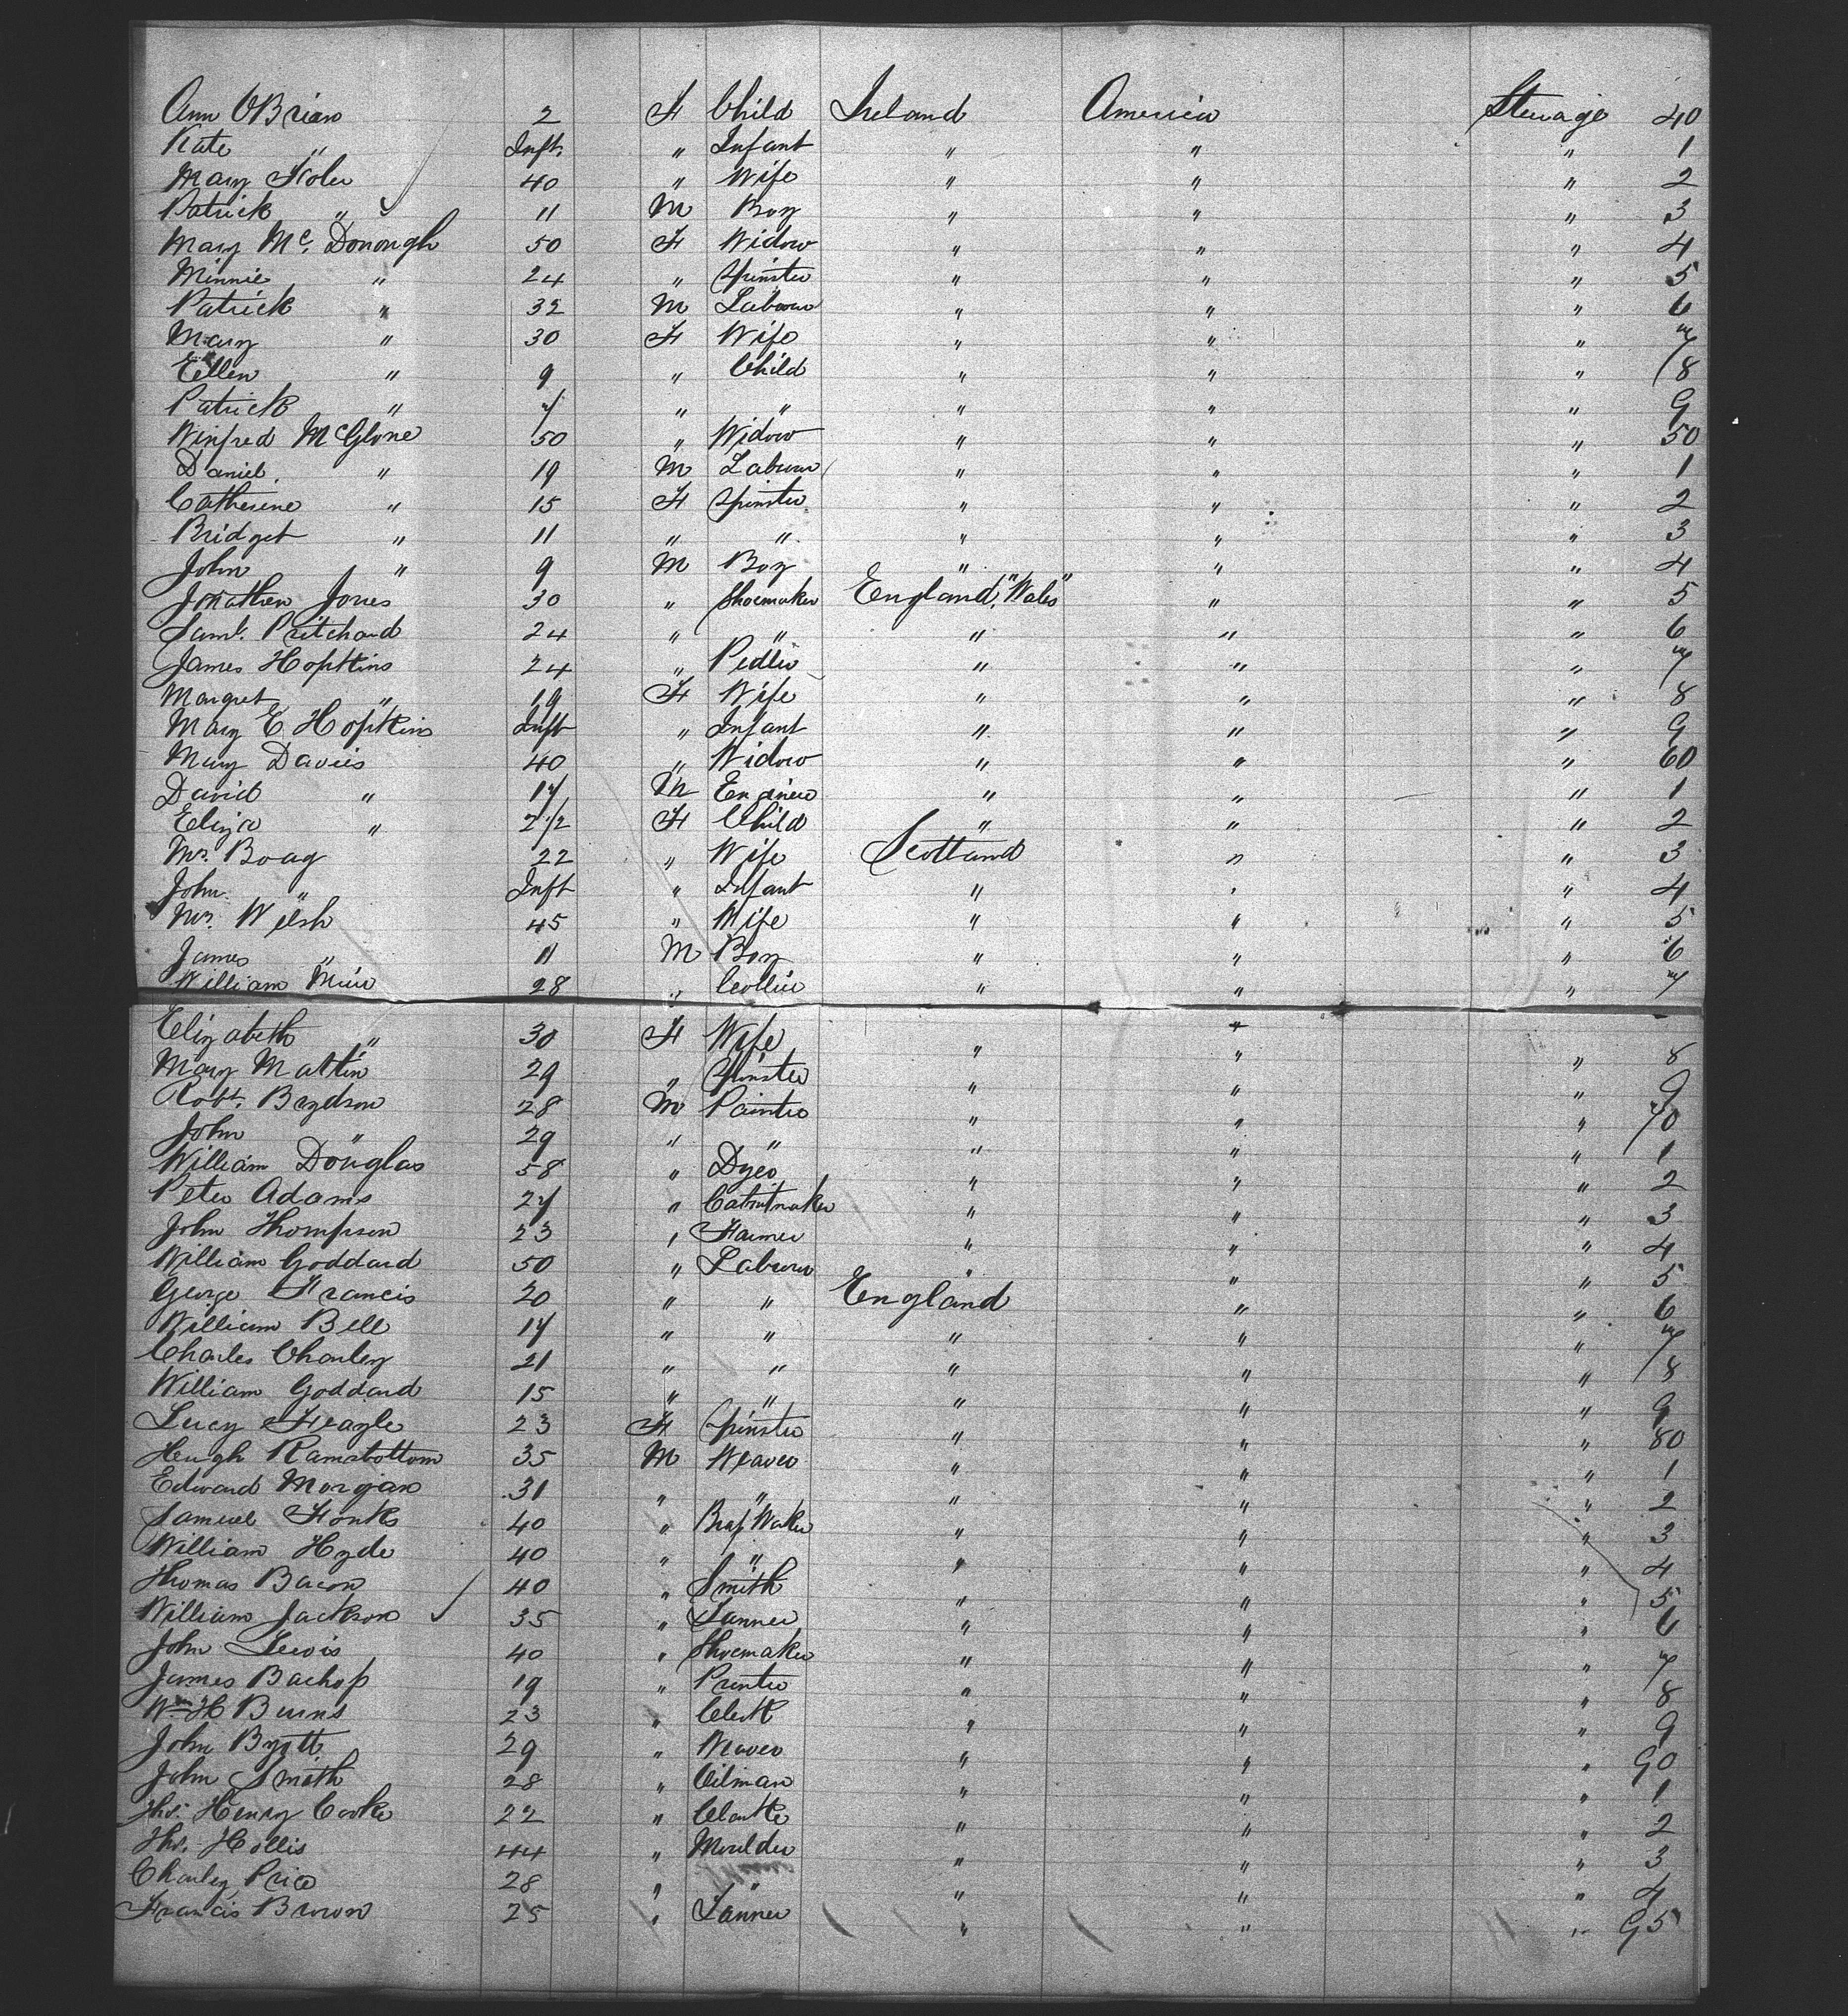 Ann OBrien 2 F Child Ireland America Steerage 40
Kate " Inft. " Infant " " " 1
Mary 40 " Wife " " " 2
Patrick " 11 M Boy " " " 3
Mary Mc. Donough 50 F Widow " " " 4
Minnie " 24 " Spinster " " " 5
Patrick " 32 M Labourer " " " 6
Mary " 30 F Wife " " " 7
Ellen " 9 " Child " " " 8
Patrick " 7 " " " " " 9
Winfred McGlone 50 " Widow " " " 50
Daniel " 19 M Labourer " " " 1
Catherine " 15 F Spinster " " " 2
Bridget " 11 " " " " " 3
John " 9 M Boy " " " 4
Jonathen Jones 30 " Shoemaker England, "Wales" " " 5
Saml. Pritchard 24 " " " " " 6
James Hopkins 24 " Pedler " " " 7
Margret " 19 F Wife " " " 8
Mary E Hopkins Inft " Infant " " " 9
Mary Davies 40 " Widow " " " 60
David " 17 M Engineer " " " 1
Eliza " 2 1/2 F Child " " " 2
Mrs. Boag 22 " Wife Scotland " " 3
John " Inft " Infant " " " 4
Mrs. Welsh 45 " Wife " " " 5
James " 11 M Boy " " " 6
William Muir 28 " Collier " " " 7
Elizabeth " 30 F Wife " " " 8
Mary Mattin 29 " Spinster " " " 9
Robt. Brydson 28 M Painter " " " 70
John " 29 " " " " " 1
William Douglas 58 " Dyer " " " 2
Peter Adams 27 " Cabinetmaker " " " 3
John Thompson 23 " Farmer " " " 4
William Goddard 50 " Labourer " " " 5
George Francis 20 " " England " " 6
William Bell 17 " " " " " 7
Charles Charley 21 " " " " " 8
William Goddard 15 " " " " " 9
Lucy Feagle 23 F Spinster " " " 80
Hugh Ramsbottom 35 M Weaver " " " 1
Edward Morgan 31 " " " " " 2
Samuel Fonks 40 " " " " 3
William Hyde 40 " " " " " 4
Thomas Bacon 40 " Smith " " " 5
William Jackson 35 " Tanner " " " 6
John Lewis 40 " Shoemaker " " " 7
James Bachop 19 " Printer " " " 8
Wm H Burns 23 " Clerk " " " 9
John Byatt 29 " Weaver " " " 90
John Smith 28 " Oilman " " " 1
Thos. Henry Cooke 22 " Clarke " " " 2
Thos. Hollis 44 " Moulder " " " 3
Charley Price 28 " " " " " 4
Francis Brown 25 " Tanner " " " 95